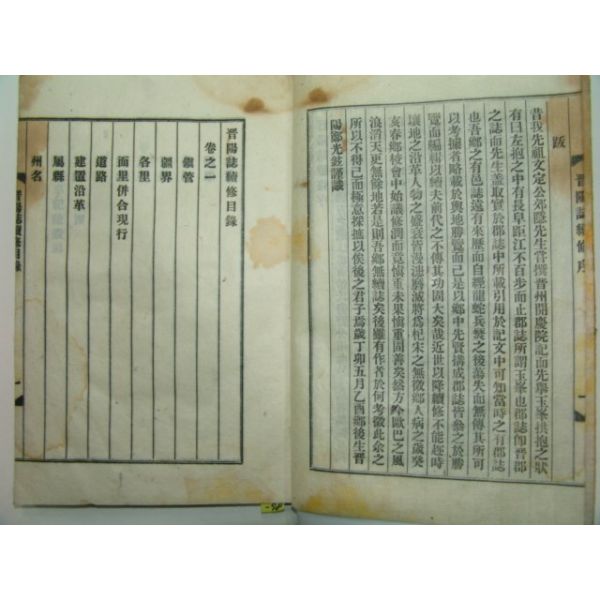 跋
昔我先祖文定公郊隱先生嘗撰晋州開慶院記而先擧玉峯拱抱之狀
有曰左抱之中有長阜距江不百步而止郡誌所謂玉峯也郡誌卽晋郡
之誌而先生盖取實於郡誌中所載引用於記文中可知當時之有郡誌
也吾鄕之有邑誌遠有來歷而自經龍蛇兵燹之後蕩失而無傳其所可
以考據者略載於輿地勝覽而已是以鄕中先賢搆成郡誌皆叅之於勝
覽而編纂以續夫前代之不傳其功固大矣哉近世以降續修不能趁時
壤地之沿革人物之盛衰皆漫漶磨滅將爲杞宋之無徵鄕人病之歲癸
亥春鄕校會中始議修潤而竟愼重未果愼重固善矣然方今歐巴之風
浪滔天更無餘地若是則吾鄕無續誌矣後雖有作者於何考徵此余之
所以不得已而極意採摭以俟後之君子焉歲丁卯五月乙酉鄕後生晋
陽鄭光鉉謹識
晋陽誌續修序
晋陽誌續修目錄
卷之一
鎭管
疆界
各里
面里併合現行
道路
建置沿革
屬縣
州名
晋陽誌續修目錄